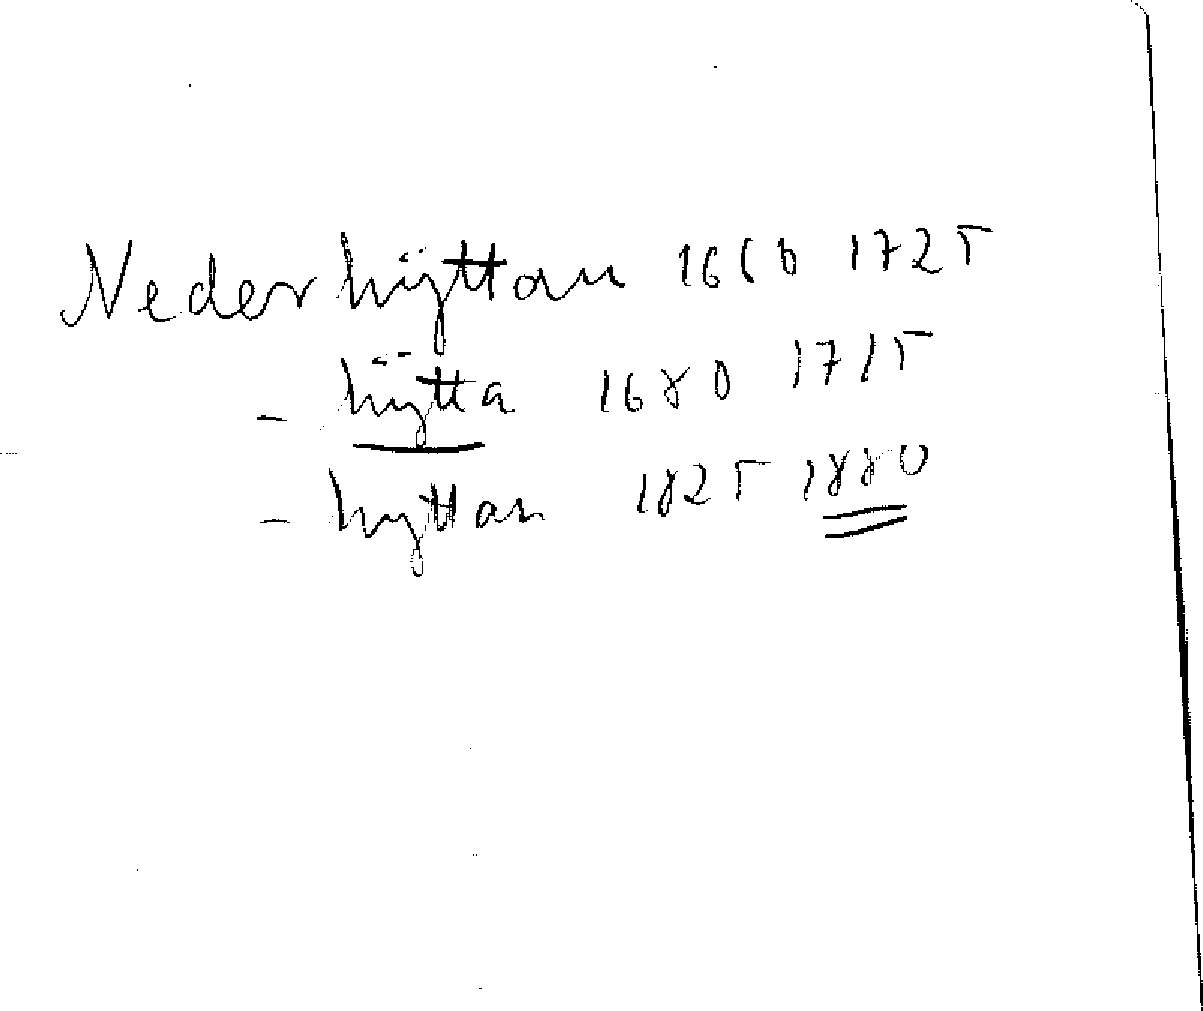 Nederhÿttan 1660 1725
- hÿtta 1680 1715
- hyttan 1825 1880